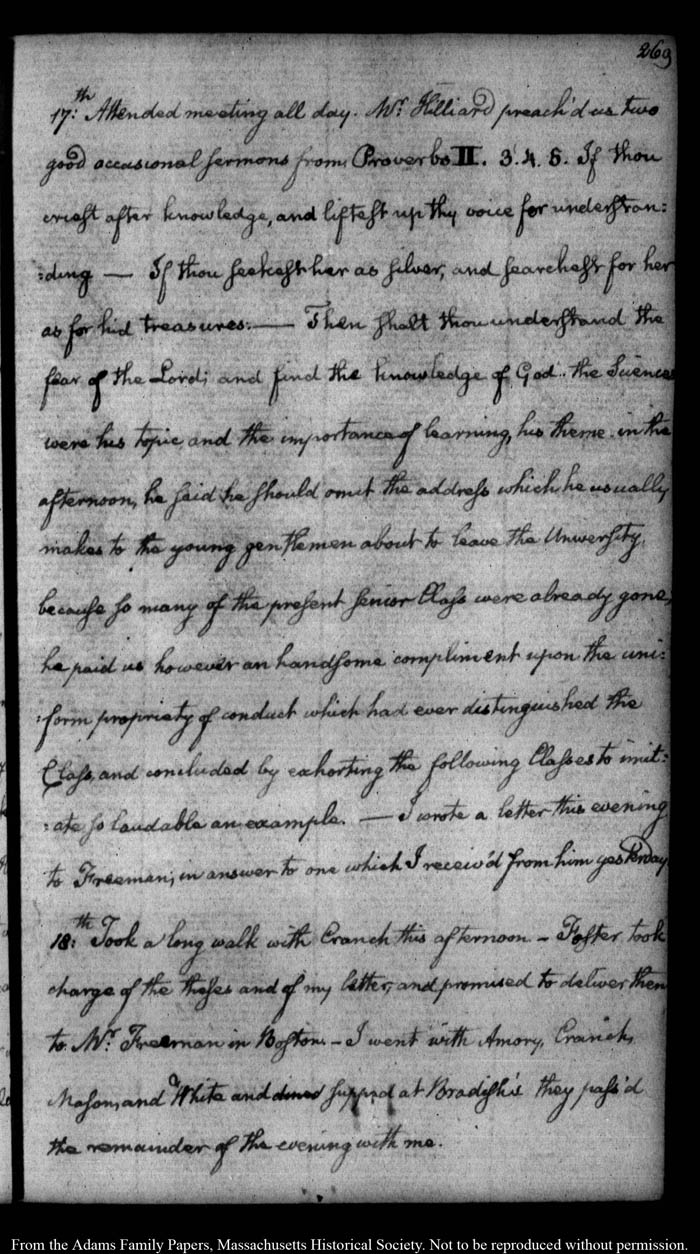 269
17:th Attended meeting all day. Mr. Hilliard preach'd us two
good occasional sermons from Proverbs II. 3. 4. 5. If thou
criest after knowledge, and liftest up thy voice for understan:
:ding — If thou seekest her as silver, and searchest for her
as for hid treasures: — Then shalt thou understand the
fear of the Lord; and find the knowledge of God.. the Sciences
were his topic, and the importance of learning, his theme. in the
afternoon, he said he should omit the address which he usually
makes to the young gentlemen about to leave the University,
because so many of the present senior Class were already gone,
he paid us however an handsome compliment upon the uni:
:form propriety of conduct which had ever distinguished the
Class, and concluded by exhorting the following Classes to imit:
:ate so laudable an example. — I wrote a letter this evening
to Freeman, in answer to one which I receiv'd from him yesterday.
18:th Took a long walk with Cranch this afternoon - Foster took
charge of the theses and of my letter, and promised to deliver them
to Mr. Freeman in Boston. - I went with Amory, Cranch,
Mason, and White and dined supp'd at Bradish's they pass'd
the remainder of the evening with me.
From the Adams Family Papers, Massachusetts Historical Society. Not to be reproduced without permission